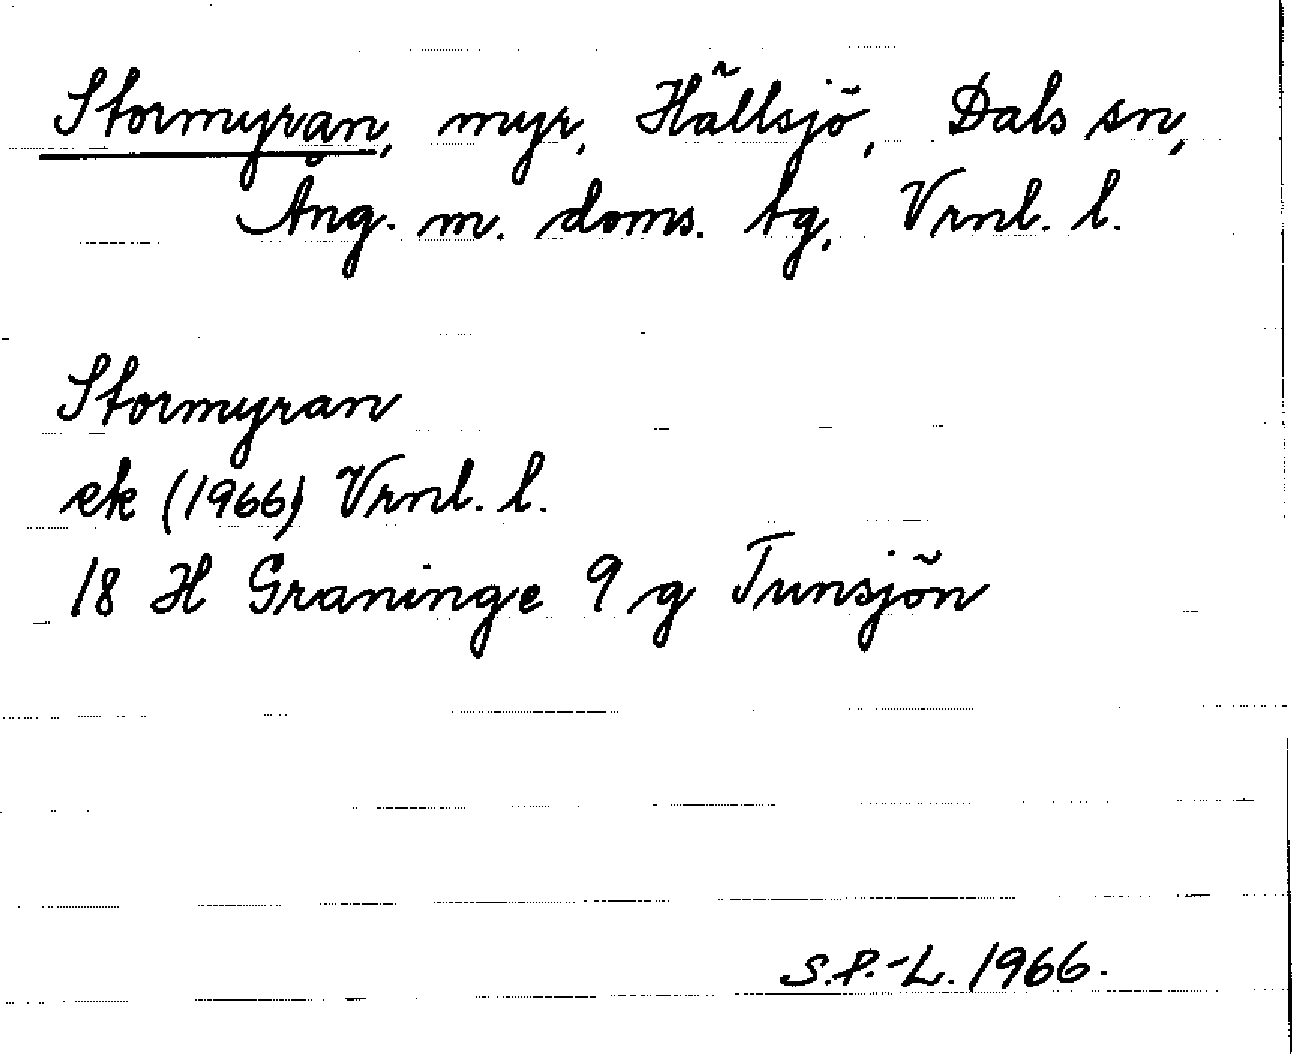 Stormyran, myr, Hällsjö, Dals sn,
Ång. m. doms. tg, Vrnl. l.
Stormyran
ek (1966) Vrnl. l.
18 H Graninge 9 g Tunsjön
S.P.-L. 1966.